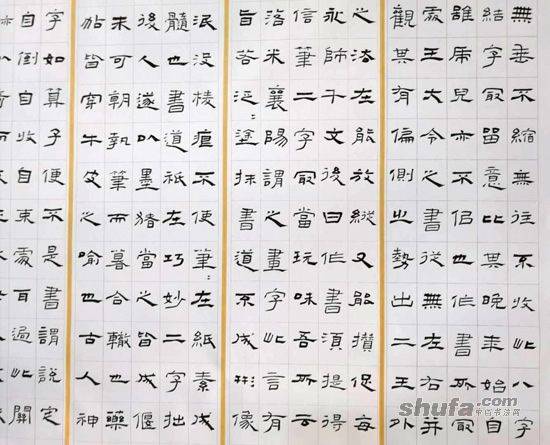 無垂不縮無往不收此八字
結字最留意比其晚年始自
雖虎兒亦不侶也作書所最
處王大令之書從無左右并
觀其有偏側之勢出二王外
之法在能放縱又能攢捉每
永師千文後曰作書須提得
信筆二字最當玩味吾所云
洛米襄陽謂之畫字此言有
旨答泛〻塗抹書道不成形像
泯沒稜痕不使筆〻在紙素成
髓也書道衹在巧妙二字拙
後人遂以墨豬當之皆成偃
未可朝執筆而暮合轍也藥
帖皆宰牛之喻也古人神
字如算子便不是書謂說定
自倒自收自束處可過此關
shufa.com
中国书法网